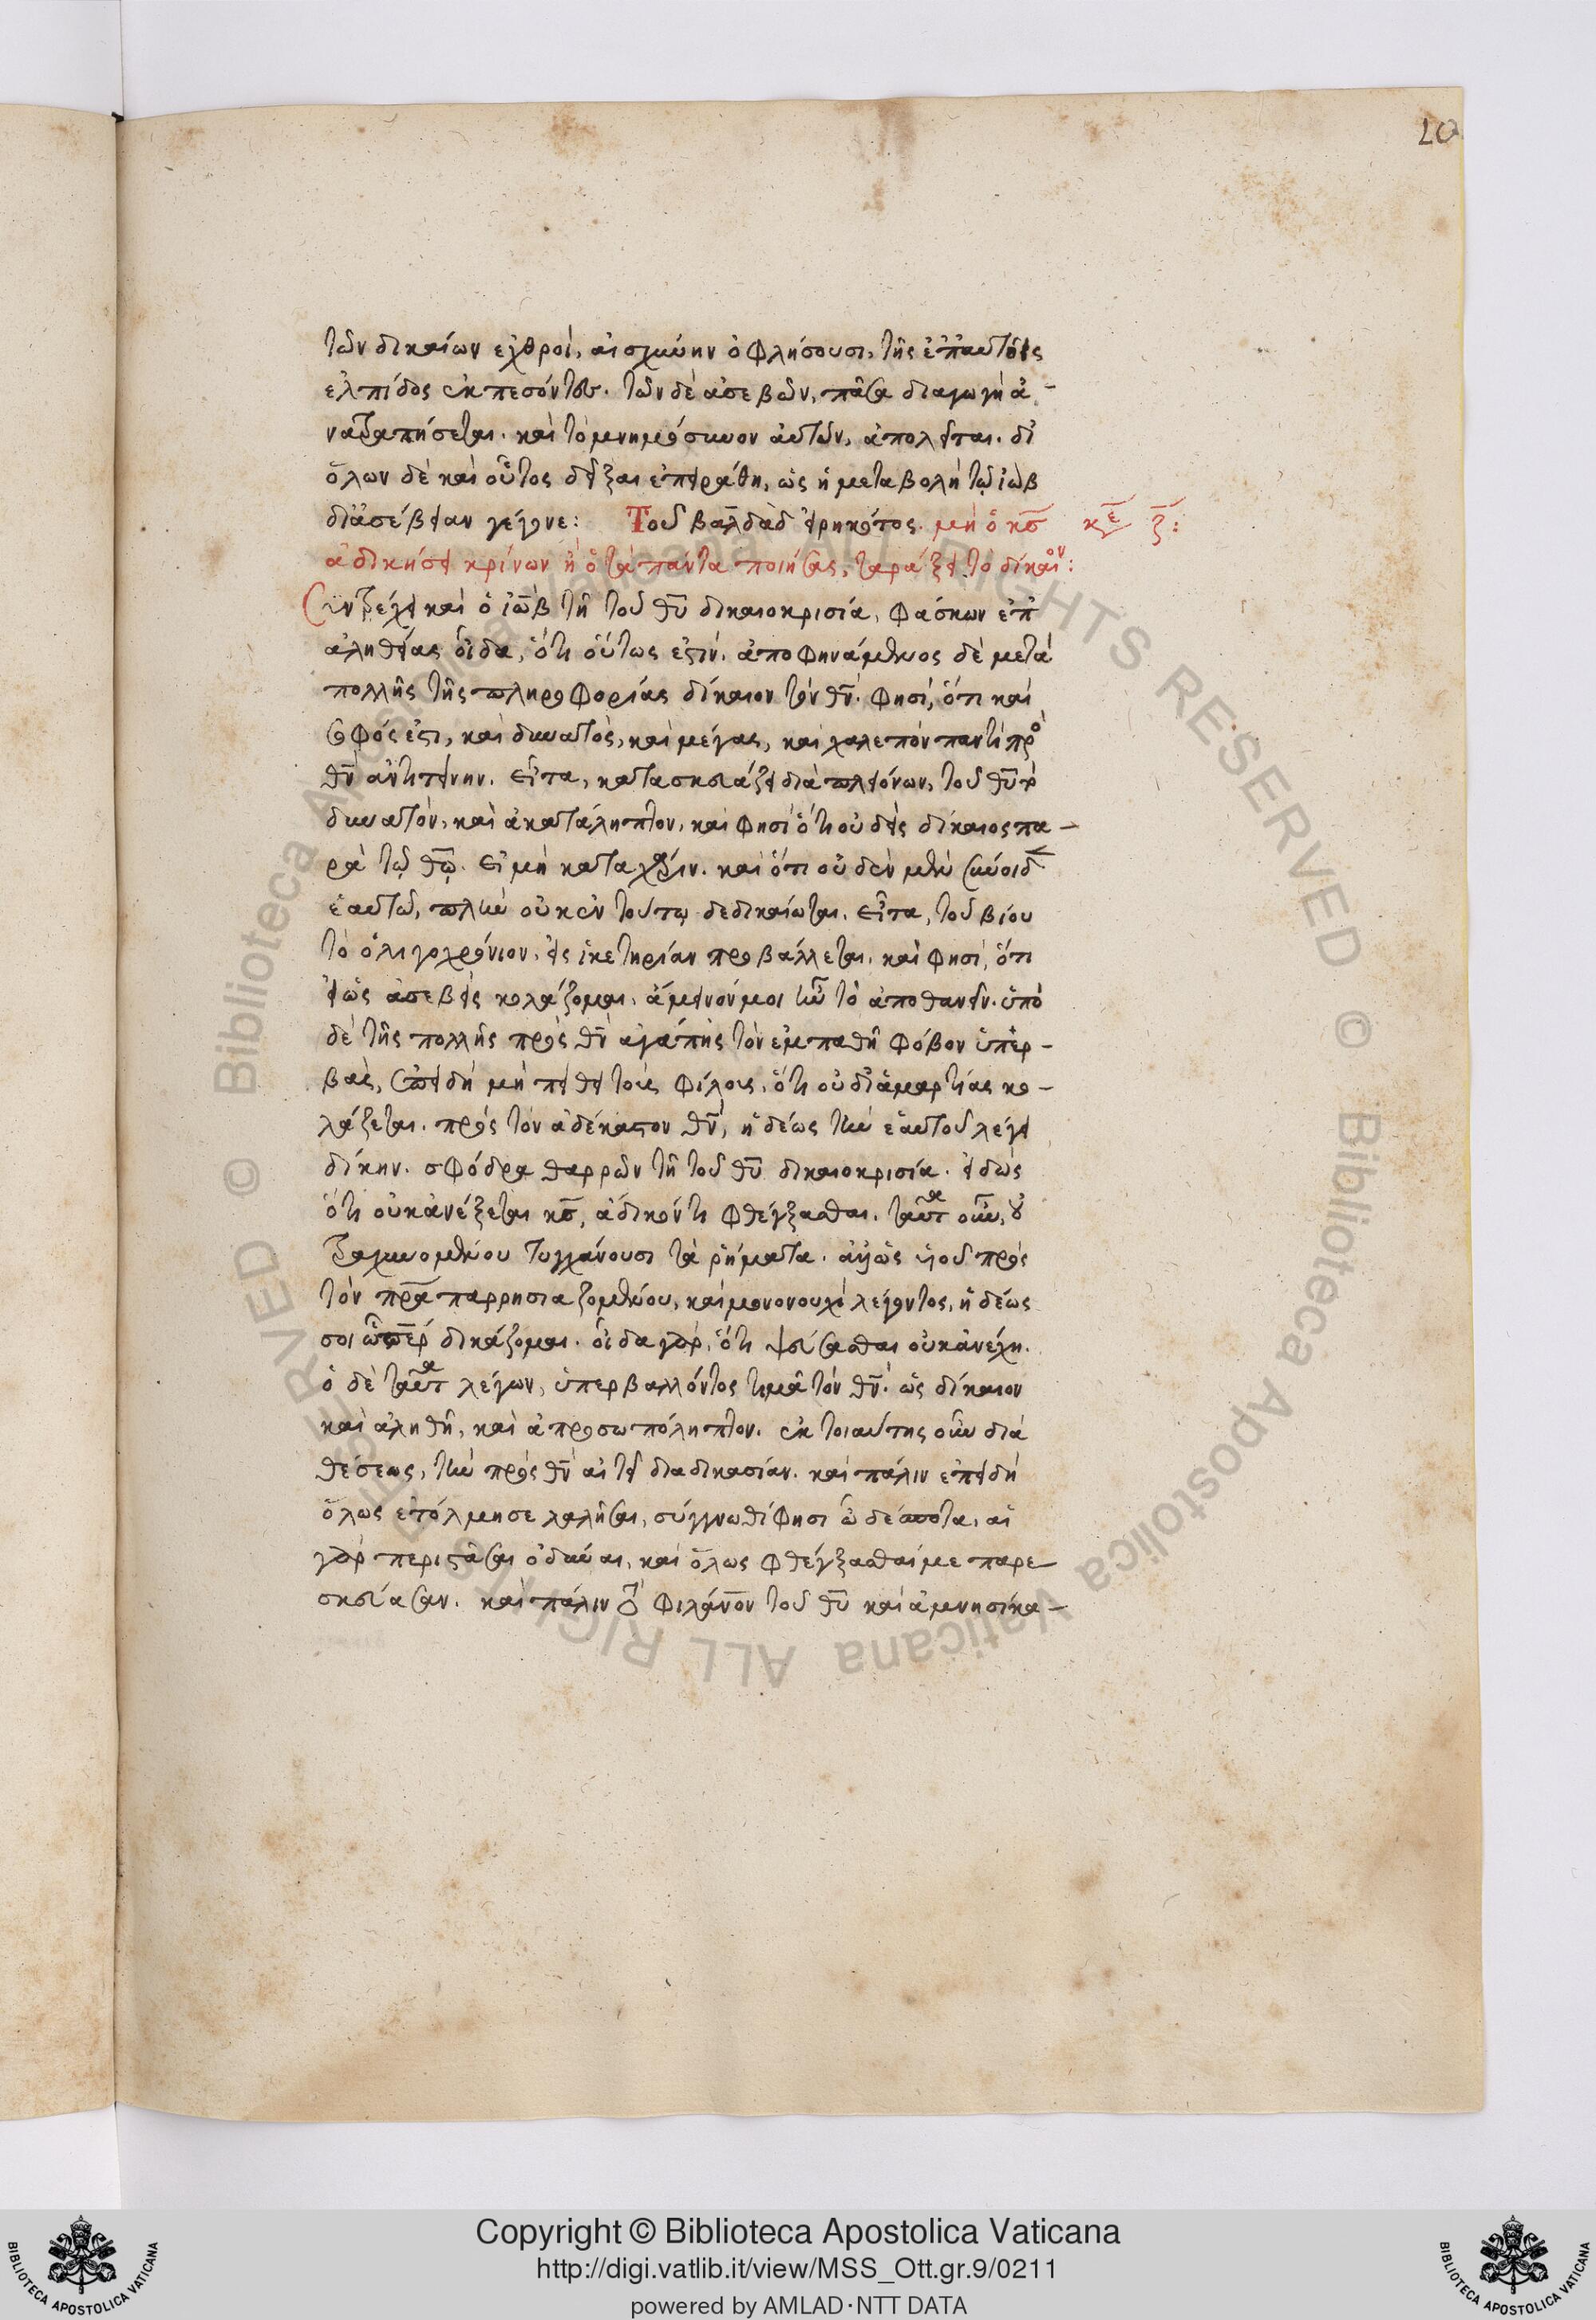 20
τῶν δικαίων ἐχθροὶ, αἰσχύνην ὀφλήσουσι, τῆς ἐπ' αὐτοῖς
ἐλπίδος ἐκπεσόντες. τῶν δὲ ἀσεβῶν, πᾶσα διαγωγὴ ἀ-
ναστήσεται. καὶ τὸ μνημόσυνον αὐτῶν, ἀπολεῖται. δι'
ὅλων δὲ καὶ οὗτος δεῖξαι ἐπειράθη, ὡς ἡ μεταβολὴ τῷ ἰὼβ
δι' ἀσέβειαν γέγονε: Τοῦ βαλδὰδ εἰρηκότος. μὴ ὁ κς κε ζ:
ἀδικήσει κρίνων ἢ ὁ τὰ πάντα ποιήσας, ταράξει τὸ δίκαιον:
Συντρέχει καὶ ὁ ἰὼβ τῇ τοῦ θυ δικαιοκρισίᾳ, φάσκων ἐπ'
ἀληθείας οἶδα, ὅτι οὕτως ἐστίν. ἀποφηνάμενος δὲ μετὰ
πολλῆς τῆς πληροφορίας δίκαιον τὸν θν. φησὶ, ὅτι καὶ
σοφός ἐστι, καὶ δυνατὸς, καὶ μέγας, καὶ χαλεπὸν παντὶ πρὸς
θν ἀντιτείνειν. εἶτα, κατασκευάζει διὰ πλειόνων, τοῦ θυ τὸ
δυνατὸν, καὶ ἀκατάληπτον, καὶ φησὶ ὅτι οὐδεὶς δίκαιος πα-
ρὰ τῷ θω. εἰ μὴ κατὰ χάριν. καὶ ὅτι οὐδὲν μὲν σύνοιδεν
ἑαυτῷ, πλὴν οὐκ ἐν τούτῳ δεδικαίωται. εἶτα, τοῦ βίου
τὸ ὀλιγοχρόνιον, εἰς ἱκετηρίαν προβάλλεται. καὶ φησὶ, ὅτι
εἰ ὡς ἀσεβεῖς κολάζομαι. ἄμεινόν μοι ἦν τὸ ἀποθανεῖν. ὑπὸ
δὲ τῆς πολλῆς πρὸς θν ἀγάπης τὸν ἐμπαθῆ φόβον ὑπερ-
βὰς, ἐπειδὴ μὴ πείθει τοὺς φίλους, ὅτι οὐ δι' ἁμαρτίας κο-
λάζεται. πρὸς τὸν ἀδέκαστον θν, ἡδέως τὴν ἑαυτοῦ λέγει
δίκην. σφόδρα θαρρῶν τῇ τοῦ θυ δικαιοκρισίᾳ. εἰδὼς
ὅτι οὐκ ἀνέξεται κς, ἄδικόν τι φθέγξασθαι. ταῦτα οὖν, οὐ
θρασυνομένου τυγχάνουσι τὰ ῥήματα. ἀλλ' ὡς υἱοῦ πρὸς
τὸν πρα παρρησιαζομένου, καὶ μονονουχὶ λέγοντος, ἡδέως
σοι ὦ περ δικάζομαι. οἶδα γὰρ, ὅτι ψεύσασθαι οὐκ ἀνέχῃ.
ὁ δὲ ταῦτα λέγων, ὑπερβαλλόντως τιμᾷ τὸν θν. ὡς δίκαιον
καὶ ἀληθῆ, καὶ ἀπροσωπόληπτον. ἐκ τοιαύτης οὖν δια
θέσεως, τὴν πρὸς θν αἰτεῖ διαδικασίαν. καὶ πάλιν ἐπειδὴ
ὅλως ἐτόλμησε λαλῆσαι, σύγγνωθί φησι ὦ δέσποτα, αἱ
γὰρ περιστᾶσαι ὀδύναι, καὶ ὅλως φθέγξασθαί με παρε
σκεύασαν. καὶ πάλιν τὸ φιλάνον τοῦ θυ καὶ ἀμνησίκα-
© Biblioteca Apostolica Vaticana ALL RIGHTS RESERVED © Biblioteca Apostolica Vaticana ALL RIGHTS RESERVED
Copyright © Biblioteca Apostolica Vaticana
http://digi.vatlib.it/view/MSS_Ott.gr.9/0211
powered by AMLAD·NTT DATA
BIBLIOTECA APOSTOLICA VATICANA
BIBLIOTECA APOSTOLICA VATICANA